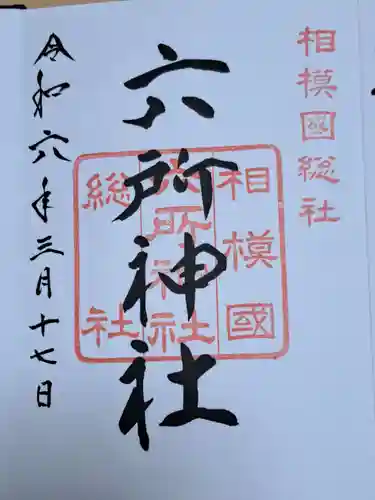 相模国総社
六所神社
相模國
六所神社
総社
令和六年三月十七日